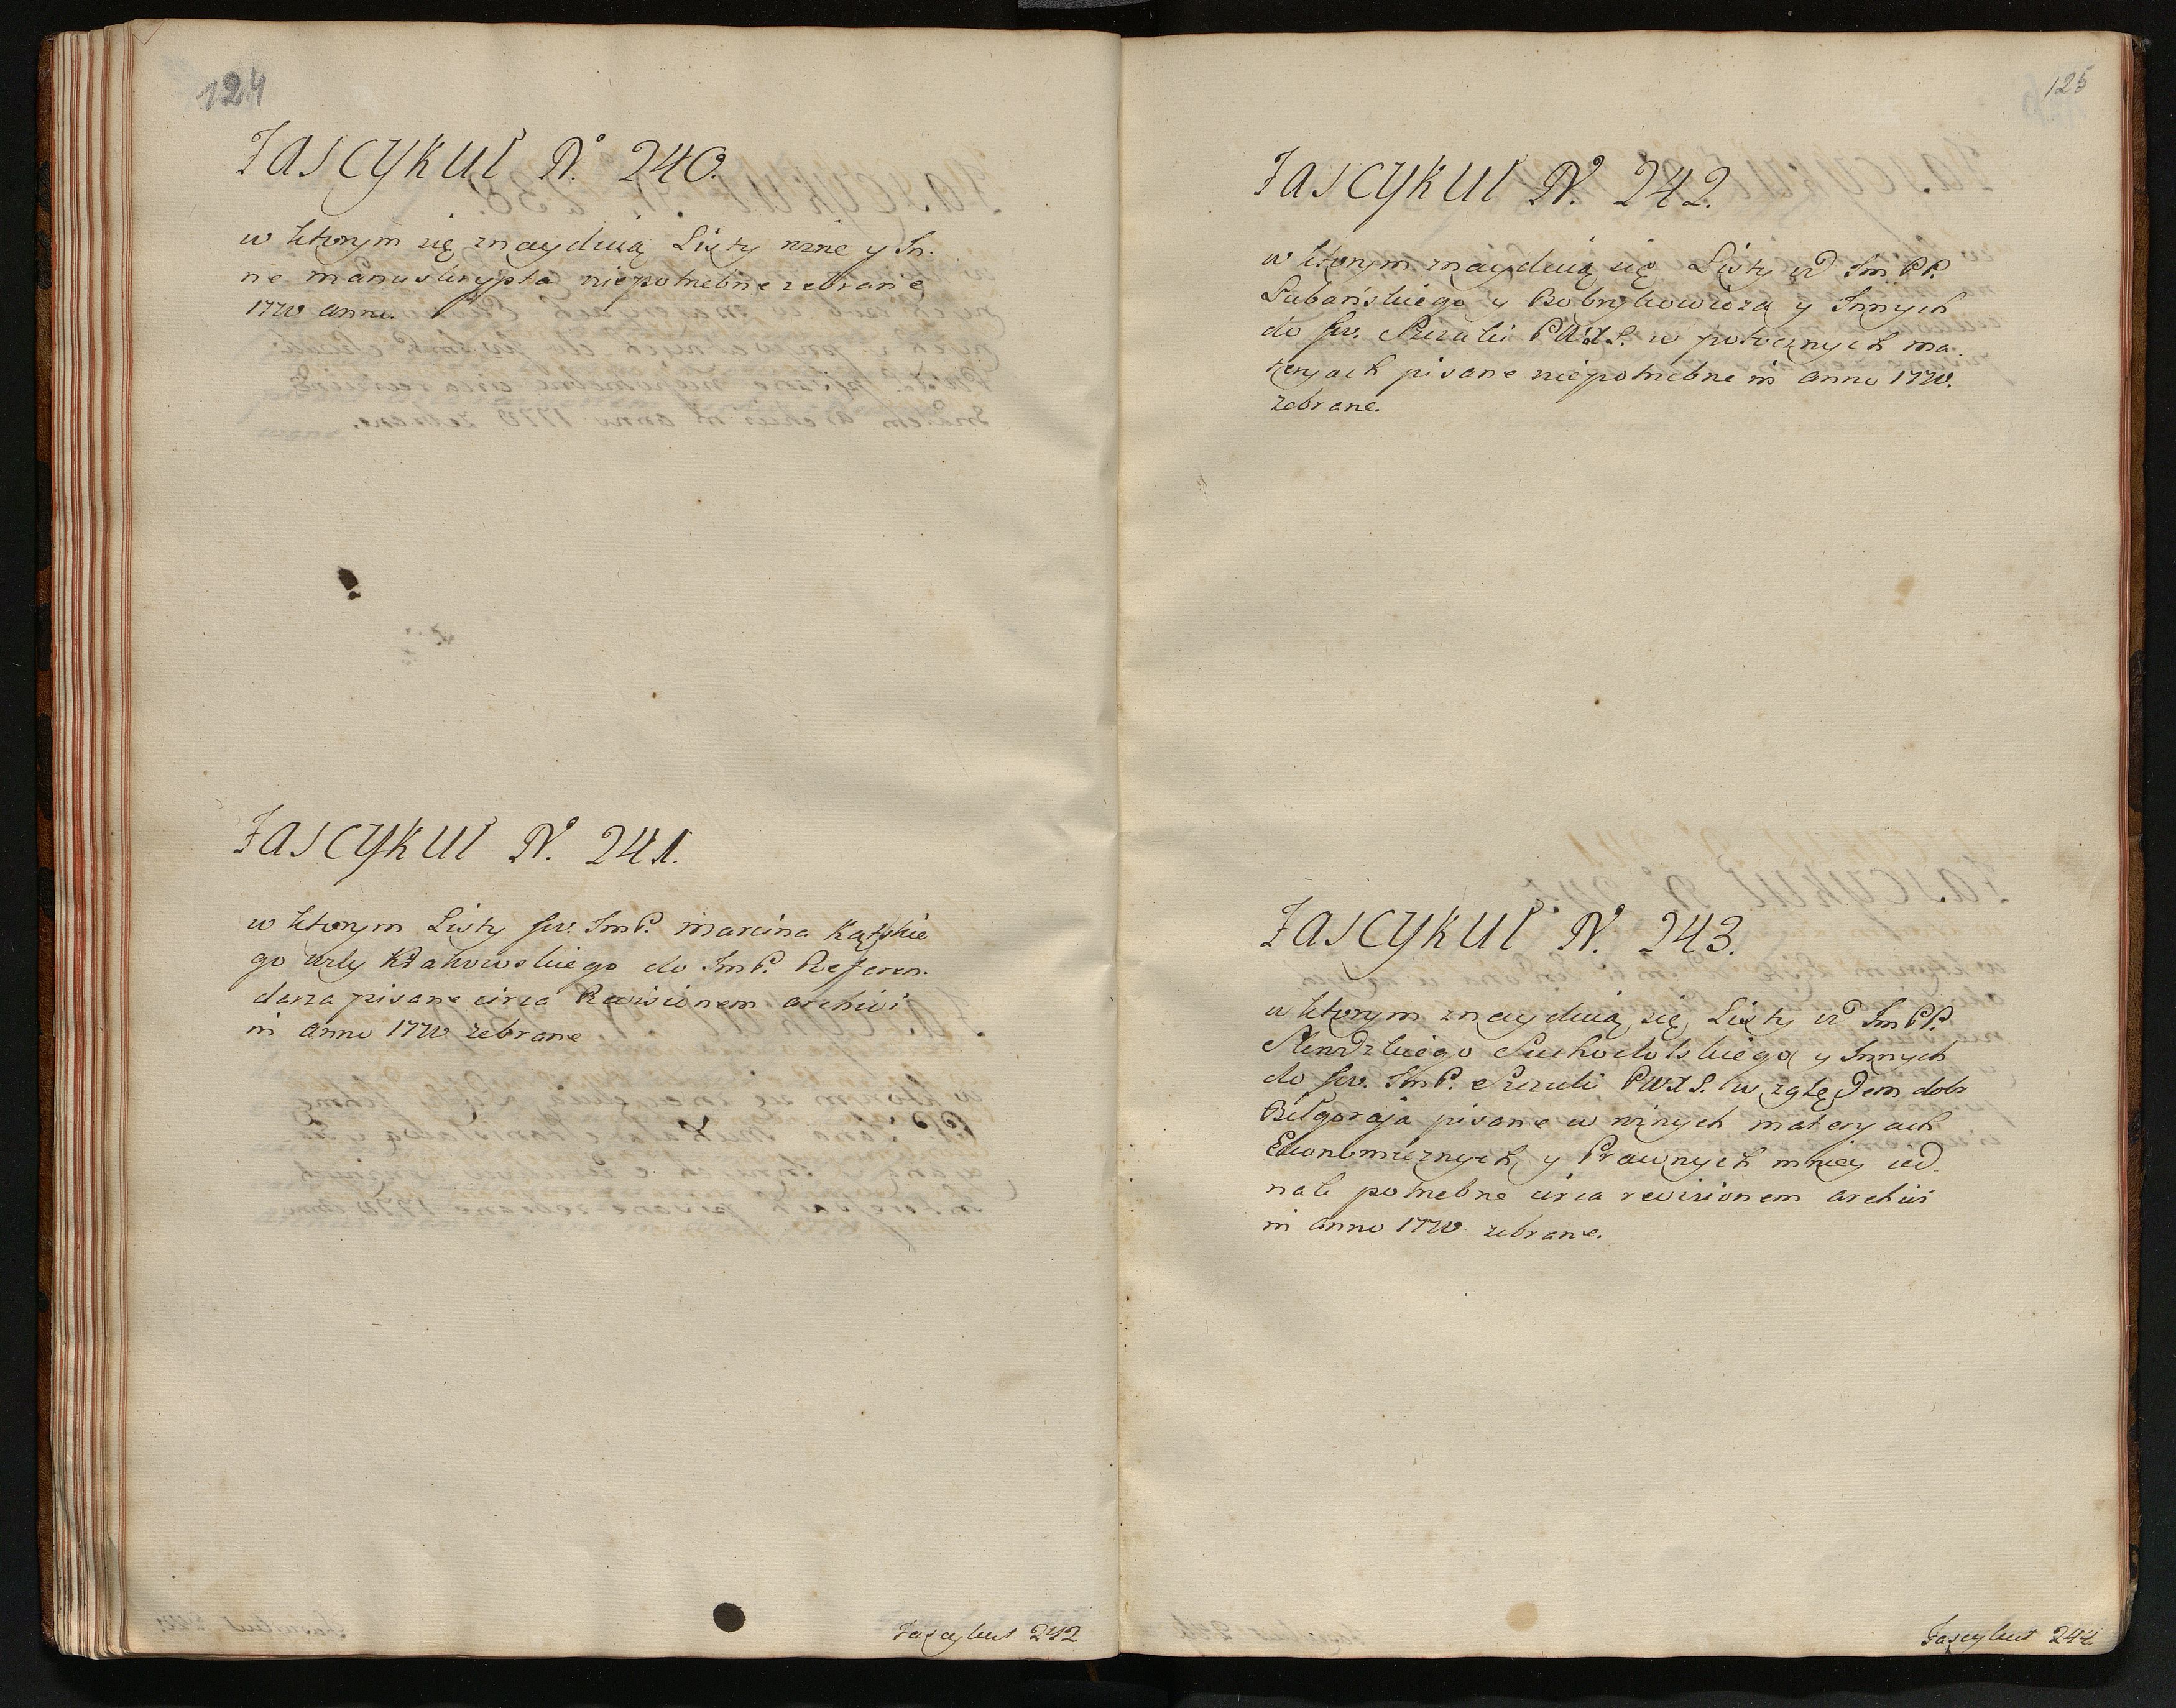 124
Fascykuł N. 240.
w ktorym się znayduią Listy rożne y In-
ne manuskrypta niepotrzebne zebrane
1770 anno.
Fascykuł N. 241.
w ktorym Listy św. ImP. Marcina Kątskie
go Wdy Krakowskiego do ImP. Referen-
darza pisane circa Rewisionem archivi
in anno 1770 zebrane
Fascykuł 242
125
Fascykuł N. 242.
w ktorym znayduią się Listy od Im PP.
Lubańskiego y Bobrykowicza y Innych
do św. Szczuki PWXL. w potocznych ma-
teryach pisane niepotrzebne in anno 1770.
zebrane.
Fascykuł N. 243.
w ktorym znayduią się Listy od Im PP.
Suchodolskiego y Innych
do św. ImP. Szczuki PWXL. względem dobr
Biłgoraja pisane w rożnych materyach
Ekonomicznych y Prawnych mniey ied-
nak potrzebne circa rewisionem archivi
in anno 1770 zebrane.
Fascykuł 244